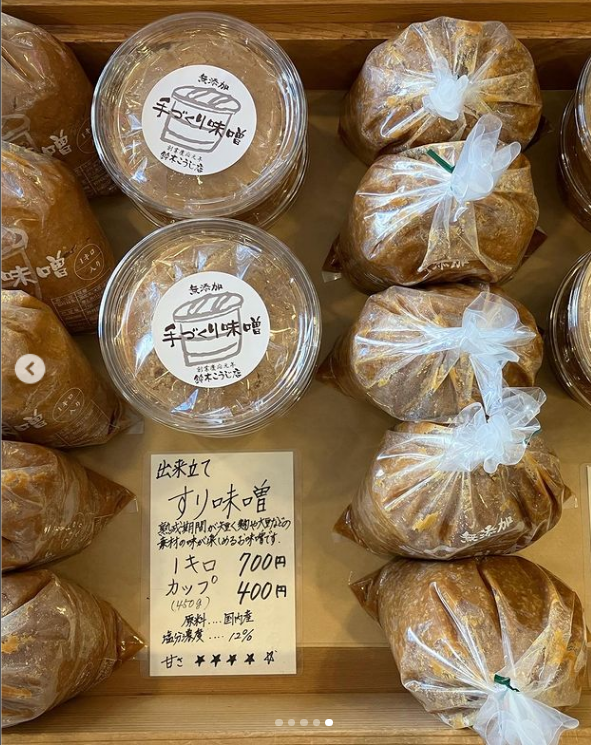 無添加
手づくり味噌
創業慶應元年
鈴木こうじ店
無添加
手づくり味噌
創業慶應元年
鈴木こうじ店
味噌
1キロ
入り
1キロ
入り
無添加
無添加
出来立て
すり味噌
熟成期間が短く麹や大豆などの
素材の味が楽しめるお味噌です.
1キロ 700円
カップ 400円
(450g)
原料....国内産
塩分濃度.... 12%
甘さ ★★★★☆